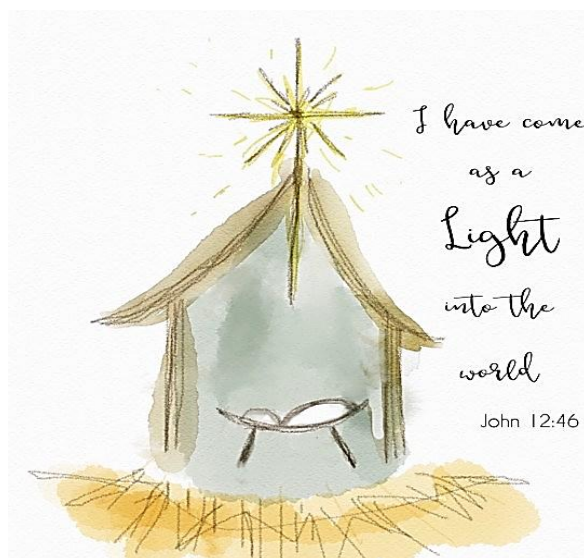 I have come
as a
Light
into the
world
John 12:46